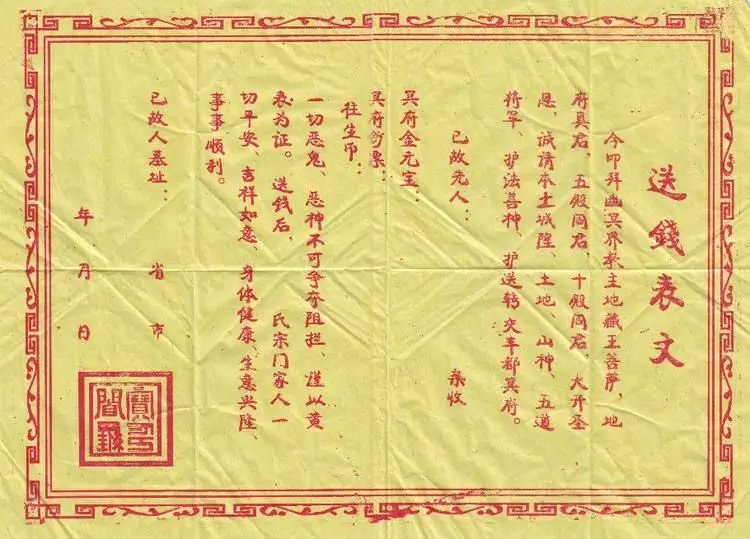 送錢表文
今叩拜幽冥界教主地藏王菩萨，地
府真君、五殿阎君、十殿阎君，大开圣
恩，诚请本土城隍、土地、山神、五道
将军、护法善神，护送转交丰都冥府。
已故先人： 亲收
冥府金元宝：
冥府钞票：
往生币：
一切恶鬼、恶神不可争夺阻拦，谨以黄
表为证。送钱后， 氏宗门家人一
切平安、吉祥如意、身体健康、生意兴隆、
事事顺利。
已故人墓址： 省 市
年 月 日